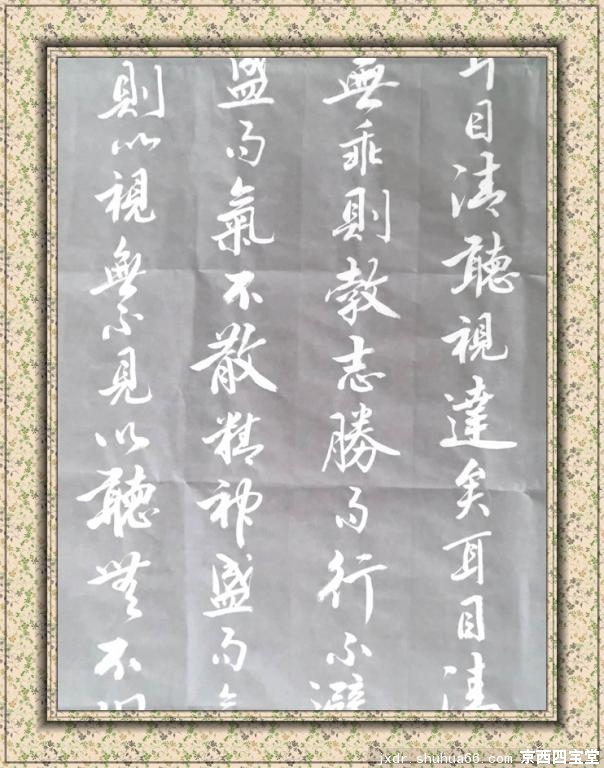 耳目清聽視達矣耳目清
無乖則教志勝而行不
盛而氣不散精神盛而
則以視無不見以聽無不
jxdr.shuhua66.com 京西四宝堂